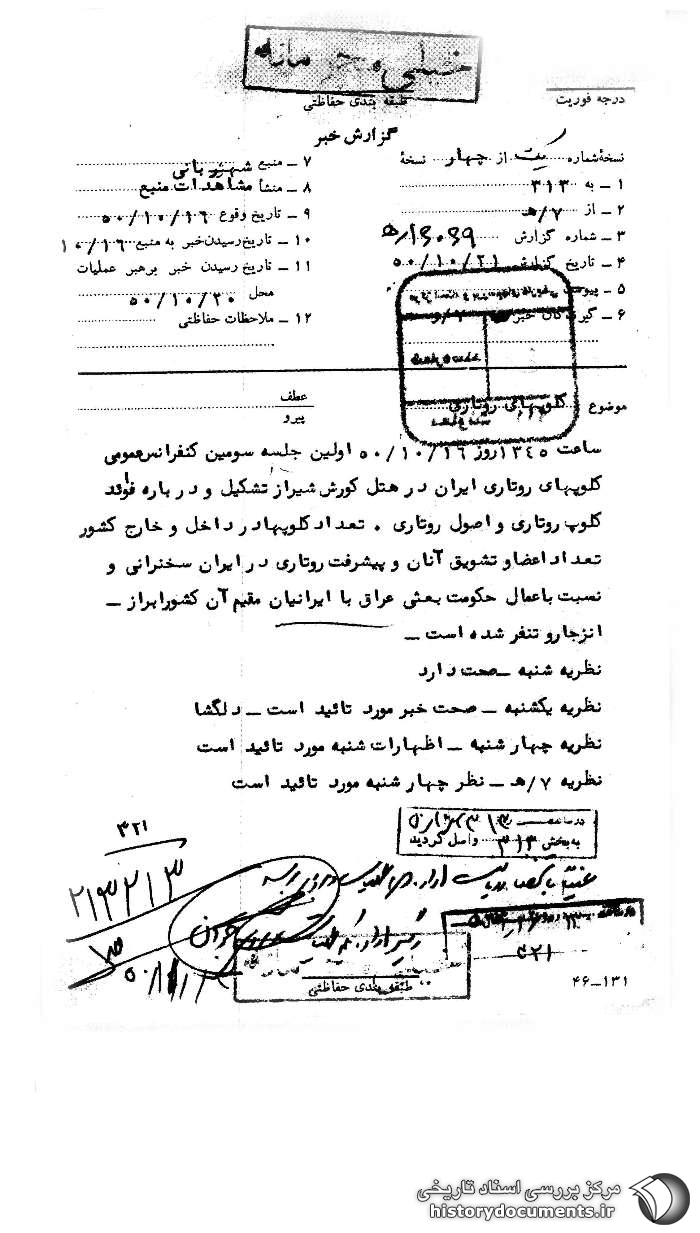 خیلی محرمانه
طبقه بندی حفاظتی
درجه فوریت
گزارش خبر
نسخهٔ شماره یک از چهار نسخهٔ
۱ ــ به ۳۱۳
۲ ــ از ۷/هـ
۳ ــ شماره گزارش
۴ ــ تاریخ گزارش ۵۰/۱۰/۲۱
۵ ــ پیوست
۶ ــ گیرندگان خبر
۷ ــ منبع شهربانی
۸ ــ منشأ مشاهدات منبع
۹ ــ تاریخ وقوع ۵۰/۱۰/۱۶
۱۰ ــ تاریخ رسیدن خبر به منبع ۱۰/۱۶
۱۱ ــ تاریخ رسیدن خبر برهبر عملیات
محل ۵۰/۱۰/۲۰
۱۲ ــ ملاحظات حفاظتی
موضوع کلوپهای روتاری
عطف
پیرو
ساعت ۱۳۴۵ روز ۵۰/۱۰/۱۶ اولین جلسه سومین کنفرانس عمومی
کلوپهای روتاری ایران در هتل کورش شیراز تشکیل و درباره فوائد
کلوپ روتاری و اصول روتاری . تعداد کلوپها در داخل و خارج کشور
تعداد اعضا و تشویق آنان و پیشرفت روتاری در ایران سخنرانی و
نسبت باعمال حکومت بعثی عراق با ایرانیان مقیم آن کشور ابراز ــ
انزجار و تنفر شده است ــ
نظریه شنبه ــ صحت دارد
نظریه یکشنبه ــ صحت خبر مورد تائید است ــ دلگشا
نظریه چهار شنبه ــ اظهارات شنبه مورد تائید است
نظریه ۷/هـ ــ نظر چهار شنبه مورد تائید است
به بخش ۳۱۳ واصل گردید
۳۲۱
۲۱۳۲۱۳
۳۲۱
طبقه بندی حفاظتی
۴۶ــ۱۳۱
مرکز بررسی اسناد تاریخی
historydocuments.ir